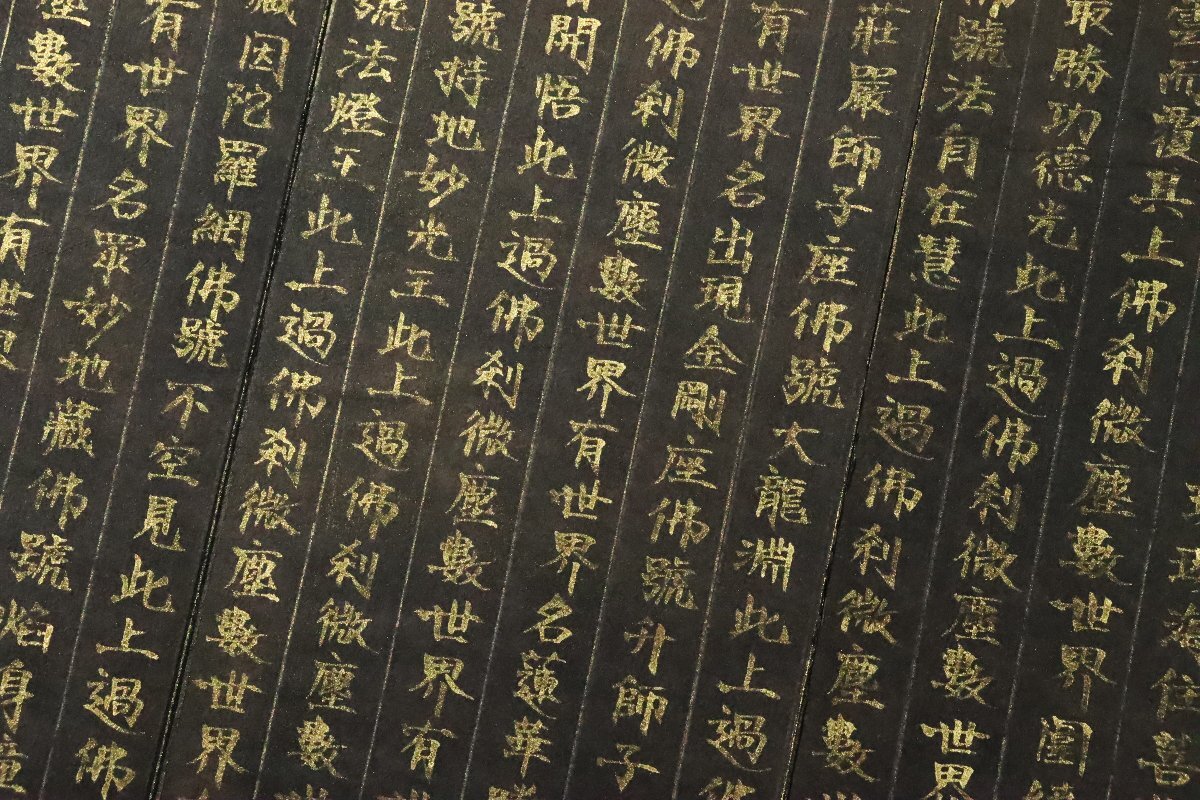 雲而覆其上佛刹微塵數世界圍
最勝功德光此上過佛刹微塵數世界
佛號法自在慧此上過佛刹微塵數
莊嚴師子座佛號大龍淵此上過佛
有世界名出現金剛座佛號升師子
過佛刹微塵數世界有世界名蓮華
開悟此上過佛刹微塵數世界有
號持地妙光王此上過佛刹微塵數
號法燈王此上過佛刹微塵數世界
藏因陀羅網佛號不空見此上過佛
有世界名眾妙地藏佛號焰身幢
塵數世界有世界